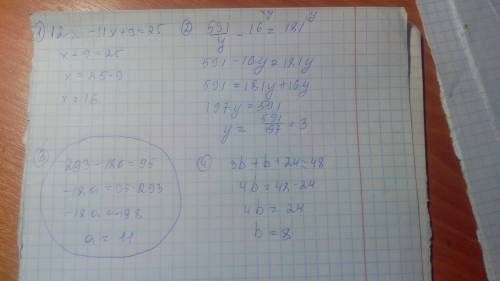 1) 12x - 11x + 9 = 25
x + 9 = 25
x = 25 - 9
x = 16
2) 591/y - 16 = 181
591 - 16y = 181y
591 = 181y + 16y
197y = 591
y = 591/197 = 3
3) 293 - 18a = 95
-18a = 95 - 293
-18a = -198
a = 11
4) 3b + b + 24 = 48
4b = 48 - 24
4b = 24
b = 8